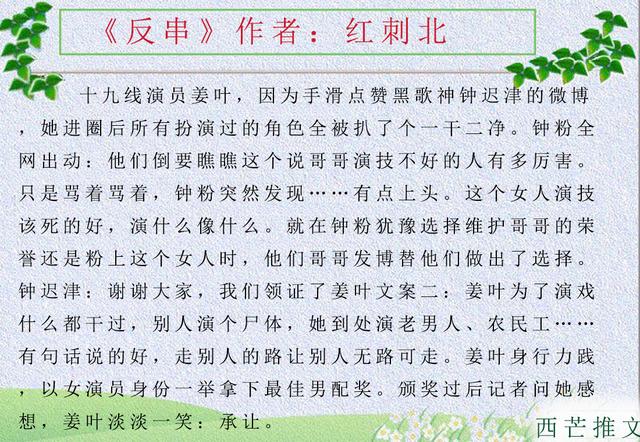 《反串》作者：红刺北
十九线演员姜叶，因为手滑点赞黑歌神钟迟津的微博
，她进圈后所有扮演过的角色全被扒了个一干二净。钟粉全
网出动：他们倒要瞧瞧这个说哥哥演技不好的人有多厉害。
只是骂着骂着，钟粉突然发现……有点上头。这个女人演技
该死的好，演什么像什么。就在钟粉犹豫选择维护哥哥的荣
誉还是粉上这个女人时，他们哥哥发博替他们做出了选择。
钟迟津：谢谢大家，我们领证了姜叶文案二：姜叶为了演戏
什么都干过，别人演个尸体，她到处演老男人、农民工……
有句话说的好，走别人的路让别人无路可走。姜叶身行力践
，以女演员身份一举拿下最佳男配奖。颁奖过后记者问她感
想，姜叶淡淡一笑：承让。
西芒推文